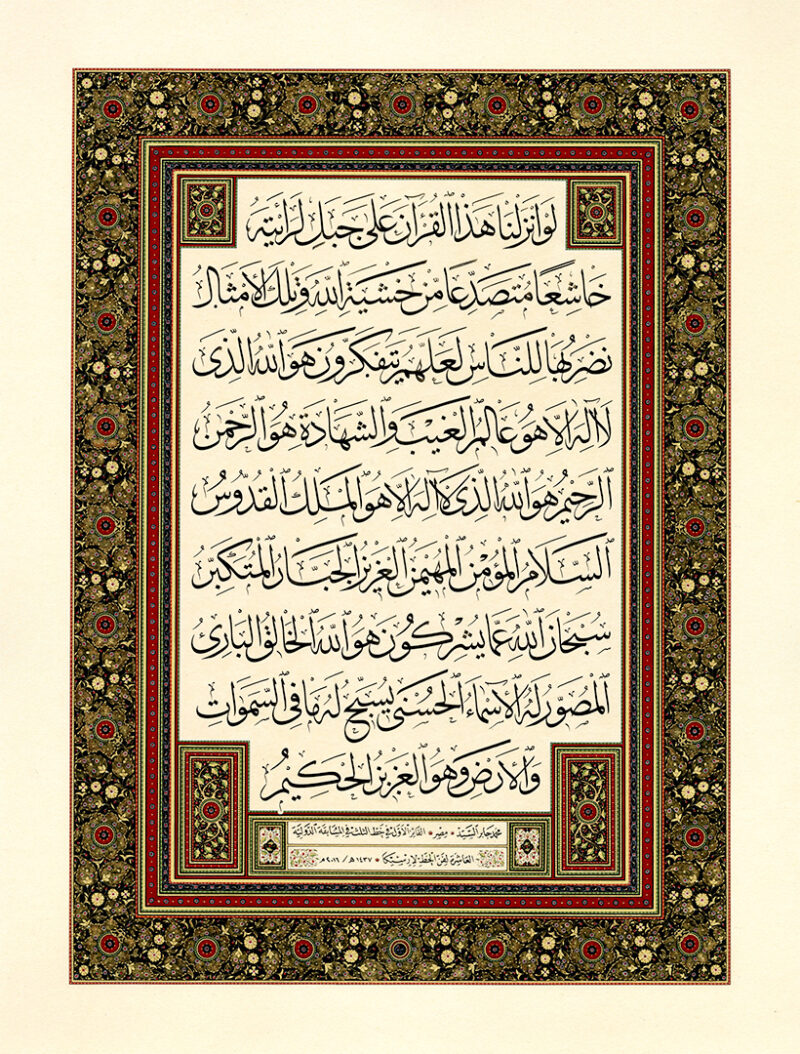 لَوْ اَنْزَلْنَا هٰذَا ٱلْقُرْآنَ عَلٰى جَبَلٍ لَرَاَيْتَهُ
خَاشِعًا مُتَصَدِّعًا مِنْ خَشْيَةِ ٱللّٰهِ وَتِلْكَ ٱلْاَمْثَالُ
نَضْرِبُهَا لِلنَّاسِ لَعَلَّهُمْ يَتَفَكَّرُونَ هُوَ ٱللّٰهُ ٱلَّذِى
لَآ اِلٰهَ اِلَّا هُوَ عَالِمُ ٱلْغَيْبِ وَٱلشَّهَادَةِ هُوَ ٱلرَّحْمٰنُ
ٱلرَّحِيمُ هُوَ ٱللّٰهُ ٱلَّذِى لَآ اِلٰهَ اِلَّا هُوَ ٱلْمَلِكُ ٱلْقُدُّوسُ
ٱلسَّلَامُ ٱلْمُؤْمِنُ ٱلْمُهَيْمِنُ ٱلْعَزِيزُ ٱلْجَبَّارُ ٱلْمُتَكَبِّرُ
سُبْحَانَ ٱللّٰهِ عَمَّا يُشْرِكُونَ هُوَ ٱللّٰهُ ٱلْخَالِقُ ٱلْبَارِئُ
ٱلْمُصَوِّرُ لَهُ ٱلْاَسْمَاءُ ٱلْحُسْنٰى يُسَبِّحُ لَهُ مَا فِى ٱلسَّمٰوَاتِ
وَٱلْاَرْضِ وَهُوَ ٱلْعَزِيزُ ٱلْحَكِيمُ
محمد جابر السيد • مصر • الفائز الأول في خط الثلث في المسابقة الدولية
العاشرة لفن الخط لإرسيكا • ١٤٣٧هـ / ٢٠١٦م